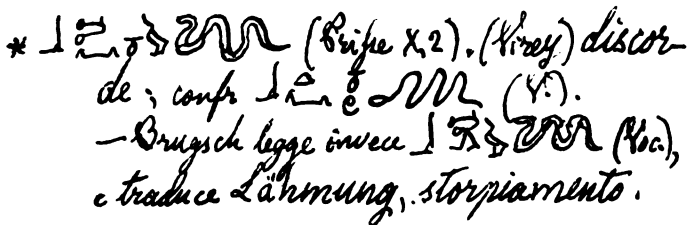 * (Prisse X, 2). (Virey) discor-
de; confr (V.).
— Brugsch legge invece (Voc.),
e traduce Lähmung, storpiamento.